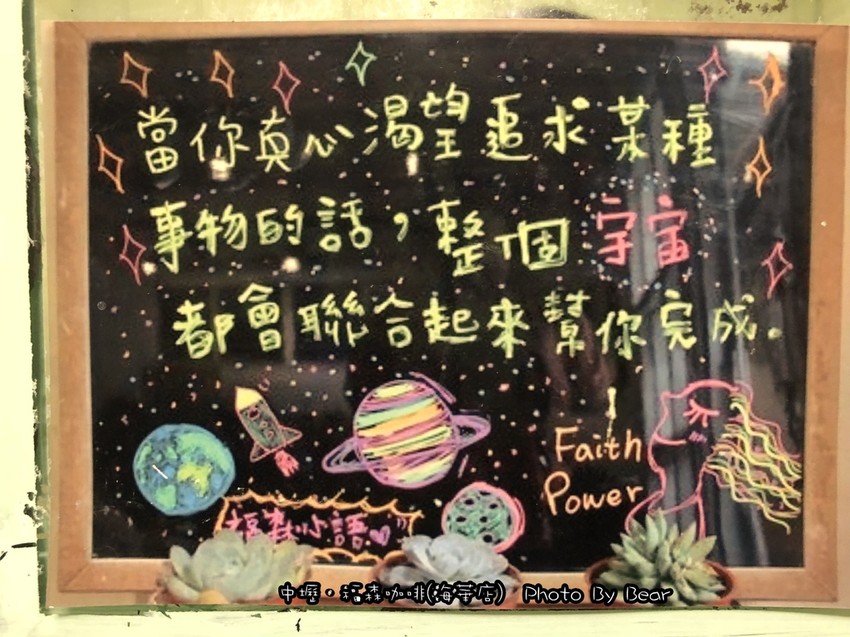 當你真心渴望追求某種
事物的話，整個宇宙
都會聯合起來幫你完成.
Faith
Power
福森小語
中壢。福森咖啡(海華店) Photo By Bear